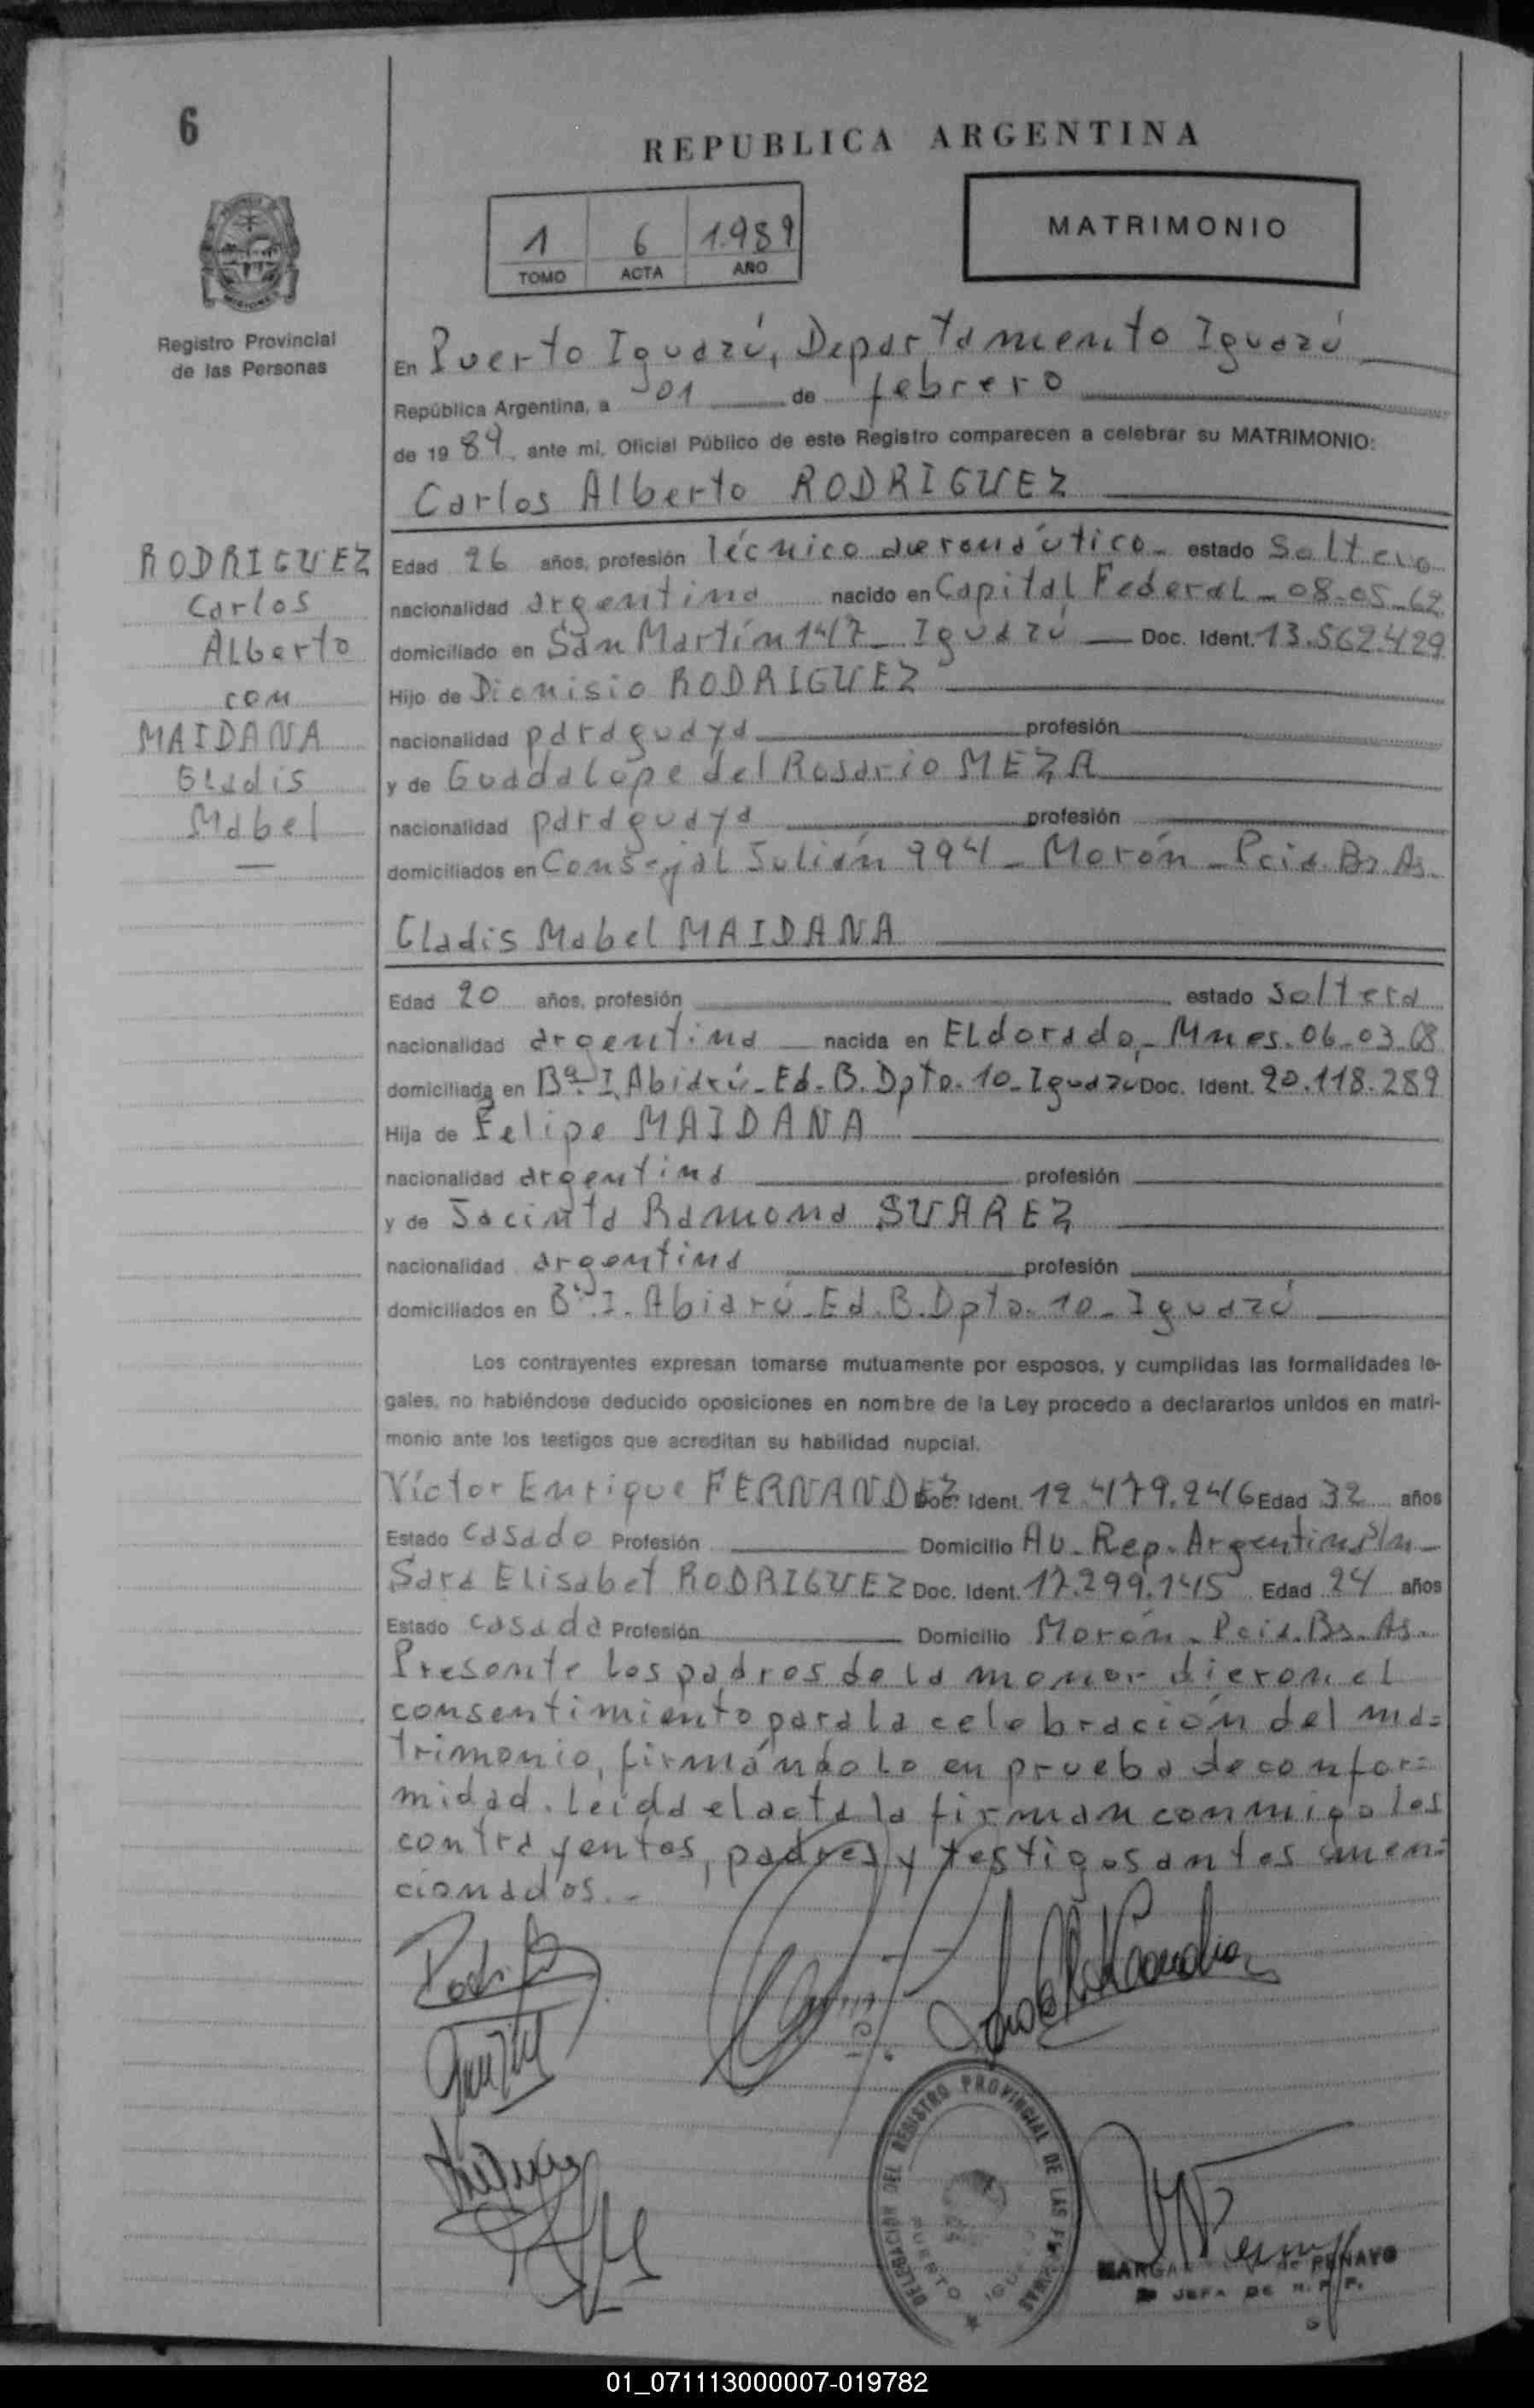 6
REPUBLICA ARGENTINA
1 6 1.989
TOMO ACTA AÑO
MATRIMONIO
MISIONES
Registro Provincial
de las Personas
En Puerto Iguazú, Departamento Iguazú
República Argentina, a 01 de febrero
de 1989, ante mi, Oficial Público de este Registro comparecen a celebrar su MATRIMONIO:
Carlos Alberto RODRIGUEZ
RODRIGUEZ
Carlos
Alberto
con
MAIDANA
Gladis
Mabel
Edad 26 años, profesión Técnico aeronáutico. estado Soltero
nacionalidad argentina nacido en Capital Federal - 08-05-62
domiciliado en San Martín 147 - Iguazú Doc. Ident. 13.562.429
Hijo de Dionisio RODRIGUEZ
nacionalidad paraguaya profesión
y de Guadalupe del Rosario MEZA
nacionalidad paraguaya profesión
domiciliados en Consejal Julián 994 - Morón - Pcia. Bs. As.
Gladis Mabel MAIDANA
Edad 20 años, profesión estado Soltera
nacionalidad argentina nacida en Eldorado, Mnes. 06-03-68
domiciliada en Bº I. Abidrú - Ed. B. Dpto. 10 - Iguazú Doc. Ident. 20.118.289
Hija de Felipe MAIDANA
nacionalidad argentina profesión
y de Jacinta Ramona SUAREZ
nacionalidad argentina profesión
domiciliados en Bº. I. Abiarú - Ed. B. Dpto. 10 - Iguazú
Los contrayentes expresan tomarse mutuamente por esposos, y cumplidas las formalidades le-
gales, no habiéndose deducido oposiciones en nombre de la Ley procedo a declararlos unidos en matri-
monio ante los testigos que acreditan su habilidad nupcial.
Víctor Enrique FERNANDEZ Doc. Ident. 12.479.246 Edad 32 años
Estado Casado Profesión Domicilio Av. Rep. Argentina s/n
Sara Elisabet RODRIGUEZ Doc. Ident. 17.299.145 Edad 24 años
Estado casada Profesión Domicilio Morón - Pcia. Bs. As.
Presente los padres de la menor dieron el
consentimiento para la celebración del ma=
trimonio, firmándolo en prueba de confor=
midad. Leída el acta la firman conmigo los
contrayentes, padres y testigos antes men=
cionados.-
DELEGACION DEL REGISTRO PROVINCIAL DE LAS PERSONAS
PUERTO IGUAZU
DE PENAYO
JEFA DE R. P. P.
01_071113000007-019782